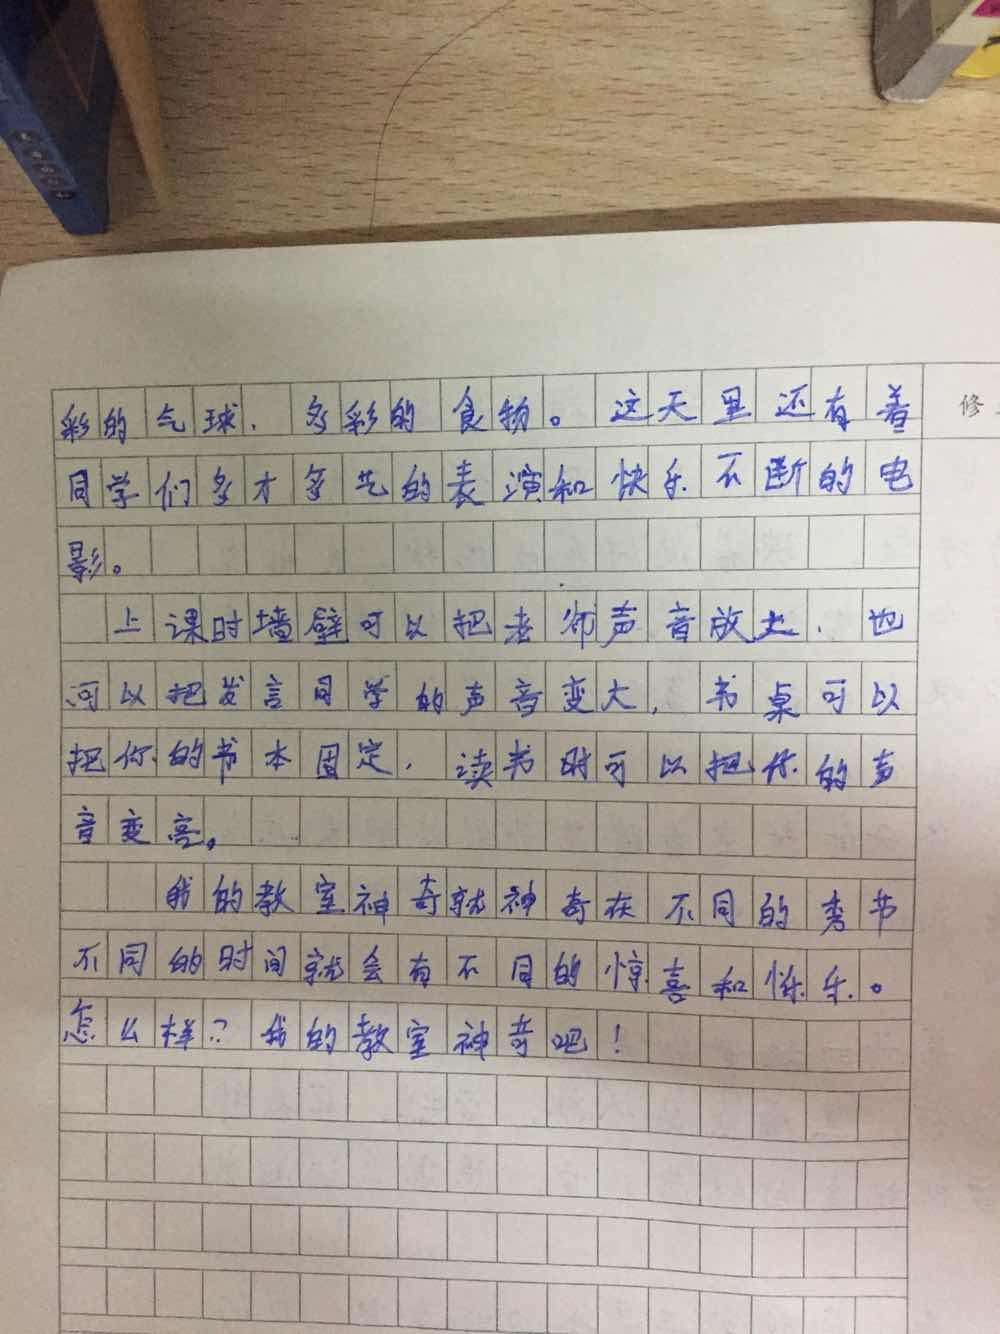 彩的气球，多彩的食物。这天里还有着
同学们多才多艺的表演和快乐不断的电
影。
上课时墙壁可以把老师声音放大，也
可以把发言同学的声音变大，书桌可以
把你的书本固定，读书时可以把你的声
音变亮。
我的教室神奇就神奇在不同的季节
不同的时间就会有不同的惊喜和快乐。
怎么样？我的教室神奇吧！
修